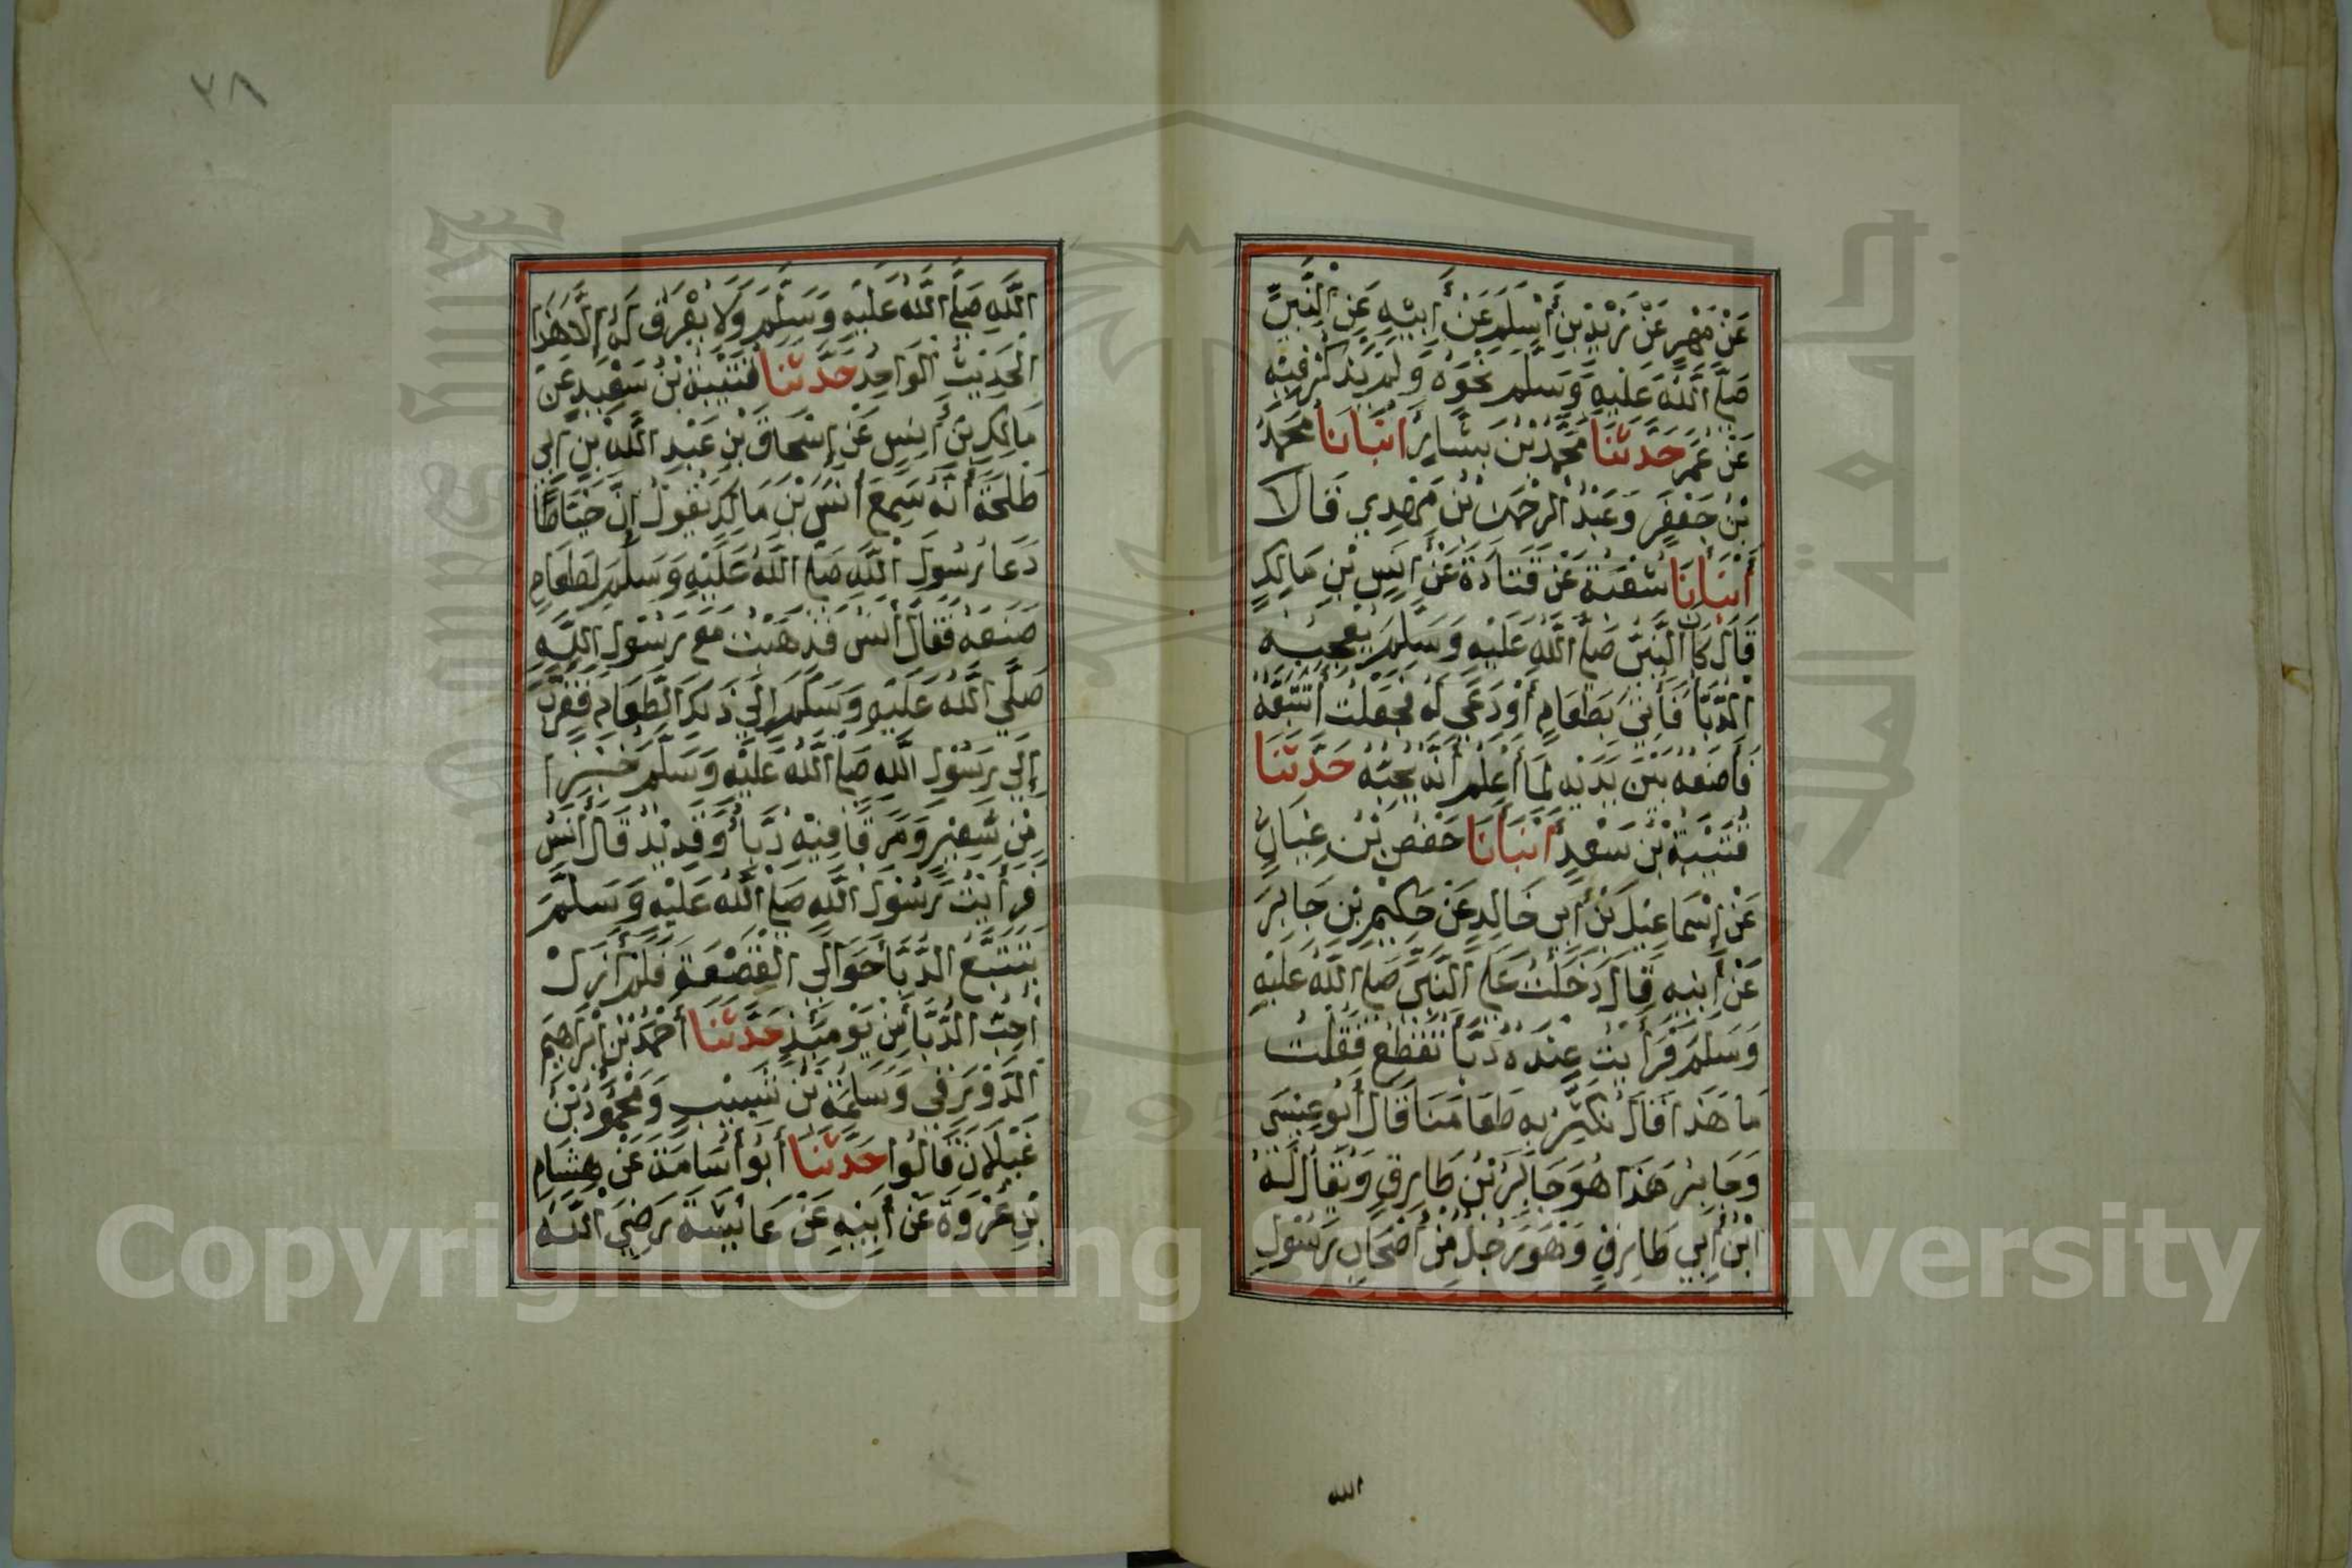 عَنْ مَعْمَرٍ عَنْ زَيْدِ بْنِ أَسْلَمَ عَنْ أَبِيْهِ عَنِ النَّبِيِّ
صَلَّى اللَّهُ عَلَيْهِ وَسَلَّمَ نَحْوَهُ وَلَمْ يَذْكُرْ فِيْهِ
عَنْ عُمَرَ حَدَّثَنَا مُحَمَّدُ بْنُ بَشَّارٍ أَنْبَأَنَا مُحَمَّدُ
بْنُ جَعْفَرٍ وَعَبْدُ الرَّحْمَنِ بْنُ مَهْدِي قَالَا
أَنْبَأَنَا شُعْبَةُ عَنْ قَتَادَةَ عَنْ أَنَسِ بْنِ مَالِكٍ
قَالَ كَانَ النَّبِيُّ صَلَّى اللَّهُ عَلَيْهِ وَسَلَّمَ يُعْجِبُهُ
الدُّبَّا فَأُتِيَ بِطَعَامٍ أَوْ دُعِيَ لَهُ فَجَعَلْتُ أَتَتَبَّعُهُ
فَأَضَعُهُ بَيْنَ يَدَيْهِ لَمَا أَعْلَمُ أَنَّهُ يُحِبُّهُ حَدَّثَنَا
قُتَيْبَةُ بْنُ سَعْدٍ أَنْبَأَنَا حَفْصُ بْنُ غِيَاثٍ
عَنْ إِسْمَاعِيْلَ بْنِ أَبِي خَالِدٍ عَنْ حَكِيْمِ بْنِ جَابِرَ
عَنْ أَبِيْهِ قَالَ دَخَلْتُ عَلَى النَّبِيِّ صَلَّى اللَّهُ عَلَيْهِ
وَسَلَّمَ فَرَأَيْتُ عِنْدَهُ دُبَّا تُقَطَّعُ فَقُلْتُ
مَا هَذَا قَالَ نُكَثِّرُ بِهِ طَعَامَنَا قَالَ أَبُو عِيْسَى
وَجَابِرُ هَذَا هُوَ جَابِرُ بْنُ طَارِقٍ وَيُقَالُ لَهُ
ابْنُ أَبِي طَارِقٍ وَهُوَ رَجُلٌ مِنْ أَصْحَابِ رَسُوْلِ
الله
٢٨
اللَّهِ صَلَّى اللَّهُ عَلَيْهِ وَسَلَّمَ وَلَا يُعْرَفُ لَهُ إِلَّا هَذَا
الْحَدِيْثُ الْوَاحِدُ حَدَّثَنَا قُتَيْبَةُ بْنُ سَعْيِيدٍ عَنْ
مَالِكِ بْنِ أَنَسٍ عَنْ إِسْحَاقَ بْنِ عَبْدِ اللَّهِ بْنِ أَبِي
طَلْحَةَ أَنَّهُ سَمِعَ أَنَسَ بْنَ مَالِكٍ يَقُولُ إِنَّ خَيَّاطًا
دَعَا رَسُولَ اللَّهِ صَلَّى اللَّهُ عَلَيْهِ وَسَلَّمَ لِطَعَامٍ
صَنَعَهُ فَقَالَ أَنَسٌ فَذَهَبْتُ مَعَ رَسُوْلِ اللَّهِ
صَلَّى اللَّهُ عَلَيْهِ وَسَلَّمَ إِلَي ذَلِكَ الطَّعَامِ فَقَرَّبَ
إِلَي رَسُوْلِ اللَّهِ صَلَّى اللَّهُ عَلَيْهِ وَسَلَّمَ خُبْزًا
مِنْ شَعِيْرٍ وَمَرَقًا فِيْهِ دُبَّأٌ وَقَدِيْدٌ قَالَ أَنَسٌ
فَرَأَيْتُ رَسُوْلَ اللَّهِ صَلَّى اللَّهُ عَلَيْهِ وَسَلَّمَ
يَتَتَبَّعُ الدُّبَّا حَوَالِي الْقَصْعَةِ فَلَمْ أَزَلْ
أُحِبُّ الدُّبَّا مِنْ يَوْمَئِذٍ حَدَّثَنَا أَحْمَدُ بْنُ إِبْرَاهِيمَ
الدَّوْرَقِي وَسَلَمَةُ بْنُ شَبِيْبٍ وَمَحْمُوْدُ بْنُ
غَيْلَانَ قَالُوا حَدَّثَنَا أَبُو أُسَامَةَ عَنْ هِشَامِ
بْنِ عُرْوَةَ عَنْ أَبِيْهِ عَنْ عَائِشَةَ رَضِيَ اللَّهُ
Copyright © King Saud University